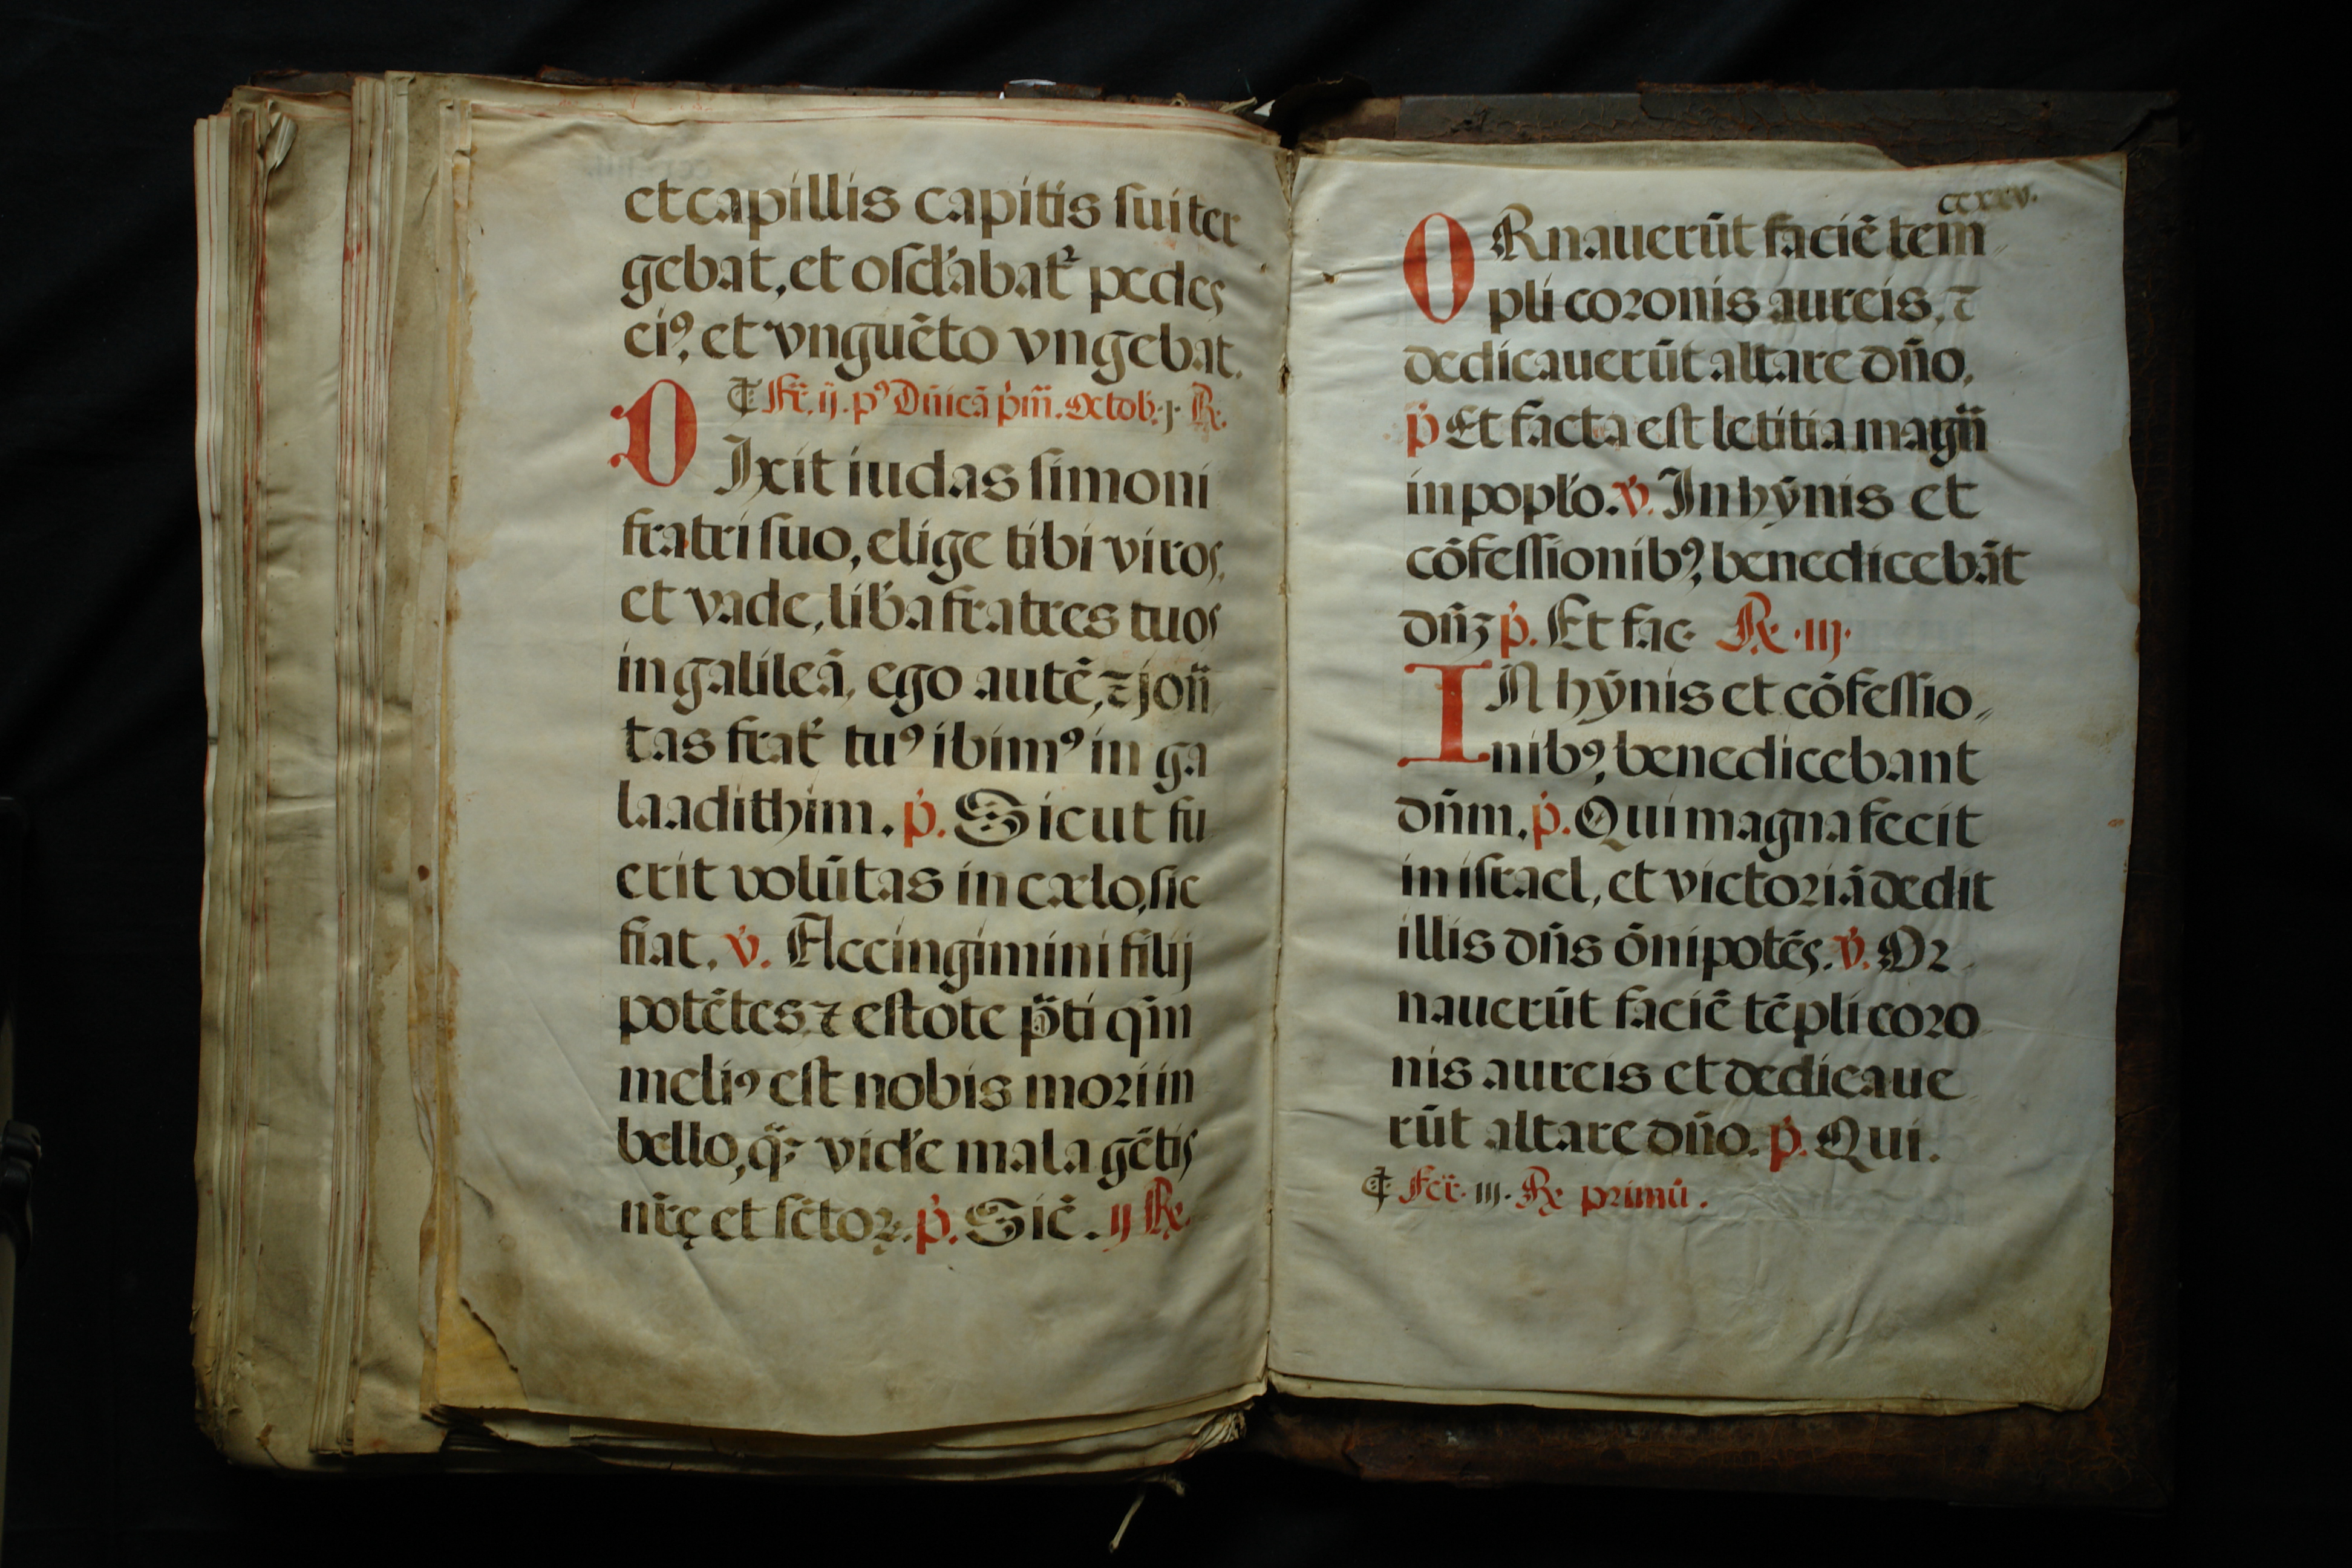 et capillis capitis suiter
gebat, et oscl̃abat᷑ pedes
ei⁹, et vnguẽto vngebat.
¶ Fr̃. ij. p⁹ Dñicã prim̃. Octob. j. ℟.
D Ixit iudas simoni
fratri suo, elige tibi viros,
et vade, lib̃a fratres tuos
in galileã, ego autẽ, ⁊ joñ
tas frat᷑ tu⁹ ibim⁹ in ga
laadithim. p̃. Sicut fu
erit volũtas in cælo, sic
fiat. ℣. Accingimini filij
potẽtes ⁊ estote p̃ti qm̃
meli⁹ est nobis mori in
bello, q̃ꝫ vidẽ mala gẽtis
nr̃ę et sc̃toꝝ. p̃. Sic̃. ij ℟.
ccxxv.
O Rnauerũt faciẽ tem⸗
pli coronis aureis, ⁊
dedicauerũt altare dño,
p̃ Et facta est letitia magñ
in popl̃o. ℣. In hỹnis et
cõfessionib⁹, benedicebãt
dñꝫ p̃. Et fac. ℟. iij.
I N hỹnis et cõfessio⸗
nib⁹, benedicebant
dñm, p̃. Qui magna fecit
in israel, et victoriã dedit
illis dñs õnipotẽs. ℣. Or
nauerũt faciẽ tẽpli coro
nis aureis et dedicaue
rũt altare dño. p̃. Qui.
¶ Fer̃. iij. ℟ primũ.